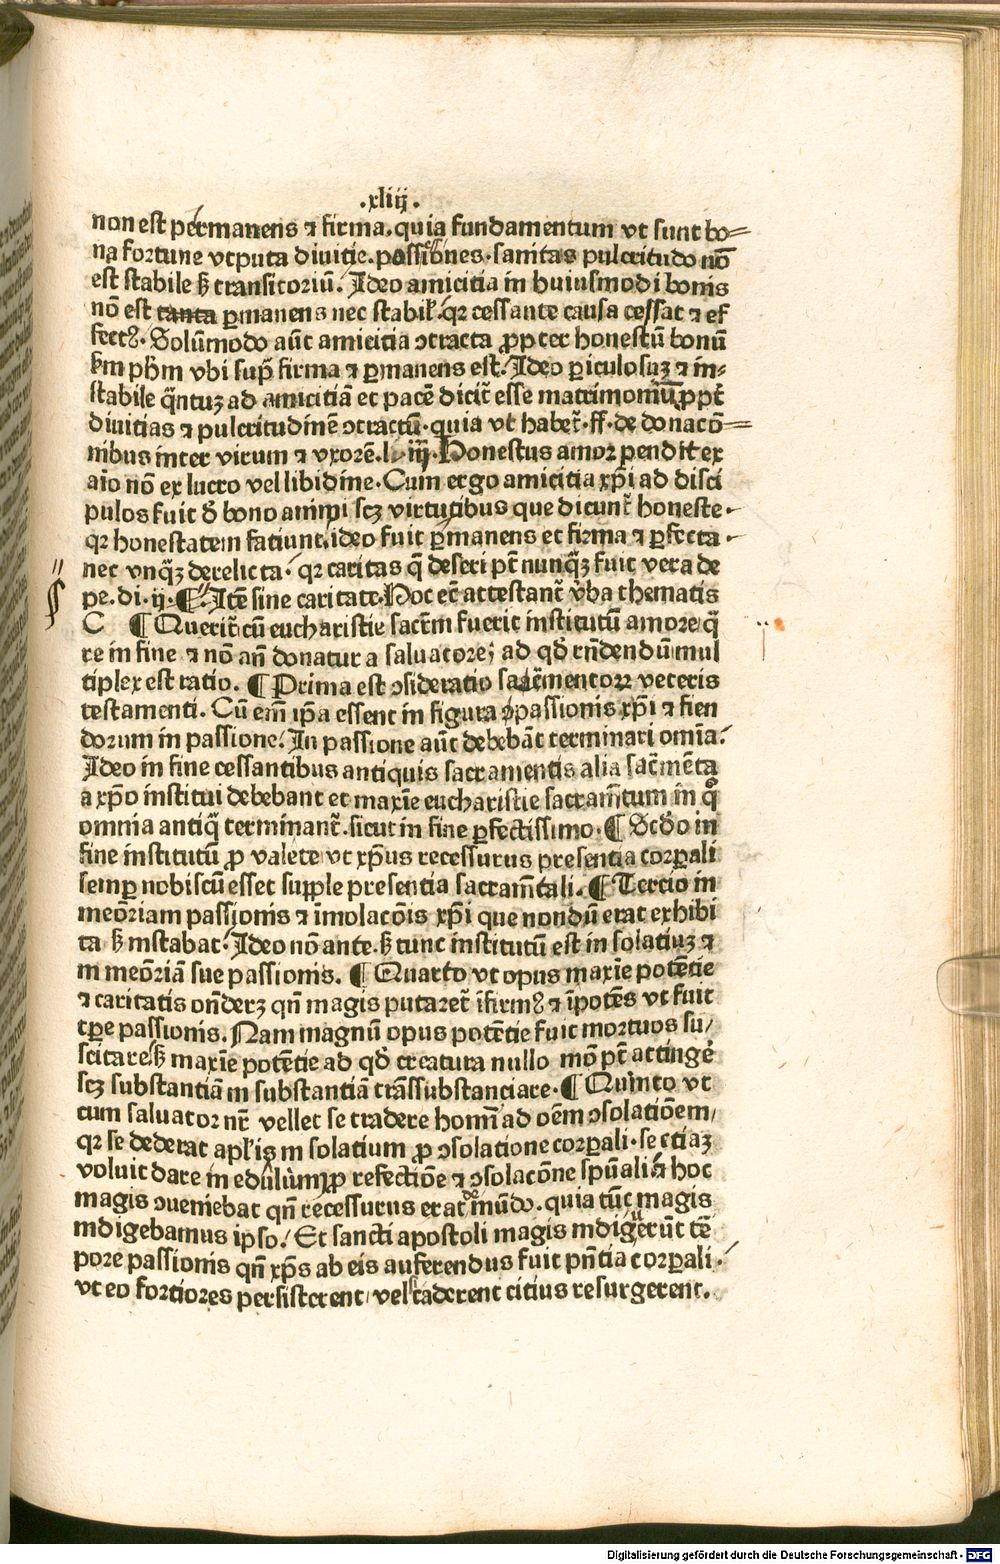 .xliij.
non est permanens ⁊ firma. quia fundamentum vt sunt bo⸗
na fortune vtputa diuitie. possessiones. sanitas pulcritudo nō
est stabile sꝫ transitoriū. Ideo amicitia in huiusmodi bonis
nō est tanta ꝑmanens nec stabil̕. qꝛ cessante causa cessat ⁊ ef
fectꝰ. Solūmodo aūt amicitia ↄtracta ꝓpter honestū bonū
km ph̄m vbi supͣ firma ⁊ ꝑmanens est. Ideo ꝑiculosuꝫ ⁊ in⸗
stabile qͣntuꝫ ad amicitiā et pacē dicit̄ esse matrimoniū ꝓpt̄
diuitias ⁊ pulcritudinē ↄtractū. quia vt habet̄. ff. de donacō⸗
nibus inter virum ⁊ vxorē. l. iij. Honestus amor pendit ex
aīo nō ex lucro vel libidine. Cum ergo amicitia xp̄i ad disci
pulos fuit ꝺ̄ bono animi scꝫ virtutibus que dicunt̄ honeste
qꝛ honestatem fatiunt. ideo fuit ꝑmanens et firma ⁊ ꝑfecta
nec vnqͣꝫ derelicta. qꝛ caritas q̄ deseri pōt nunqͣꝫ fuit vera de
pe. di. ij. ¶. Itē sine caritate. Hoc eē attestant̄ v̓ba thematis
C ¶ Querit̄ cū eucharistie sacr̄m fuerit institutū amore qͣ
re in fine ⁊ nō an̄ donatur a saluatore; ad qd̓ rn̄dendū mul
tiplex est ratio. ¶ Prima est ↄsideratio sacr̄mentoꝝ veteris
testamenti. Cū em̄ ip̄a essent in figura passionis xp̄i ⁊ fien
dorum in passione. In passione aūt debebāt terminari omīa.
Ideo in fine cessantibus antiquis sacramentis alia sacr̄mēta
a xp̄o institui debebant et maxīe eucharistie sacram̄tum in qͦ
omnia antiqͣ terminant̄. sicut in fine ꝑfectissimo. ¶ Scd̓o in
fine institutū ꝓ valete vt xp̄us recessurus presentia corꝑali
semꝑ nobiscū esset supple presentia sacram̄tali. ¶ Tercio in
meōriam passionis ⁊ īmolacōis xp̄i que nondū erat exhibi
ta sꝫ instabat. Ideo nō ante. sꝫ tunc institutū est in solatiuꝫ ⁊
in meōriā sue passionis. ¶ Quarto vt opus maxīe potētie
⁊ caritatis on̄deretꝫ qn̄ magis putaret̄ īfirmꝰ ⁊ īpotēs vt fuit
tꝑe passionis. Nam magnū opus potētie fuit mortuos su/
scitare sꝫ maxīe potētie ad qd̓ creatura nullo mō pōt attingē
scꝫ substantiā in substantiā trāssubstanciare. ¶ Quinto vt
cum saluator nr̄ vellet se tradere hom̄i ad oēm ↄsolatiōem,
qꝛ se dederat apl̓is in solatium ꝓ ↄsolatione corꝑali. se etiaꝫ
voluit dare in eduliū ꝓ refectiōe ⁊ ↄsolacōne spūali hoc
magis ↄueniebat qn̄ recessurus erat de mūdo. quia tūc magis
indigebamus ipso. Et sancti apostoli magis indiguerūt tē
pore passionis qn̄ xp̄s ab eis auferendus fuit pn̄tia corꝑali.
vt eo fortiores persisterent, vel si caderent citius resurgerent.
Digitalisierung gefördert durch die Deutsche Forschungsgemeinschaft - DFG